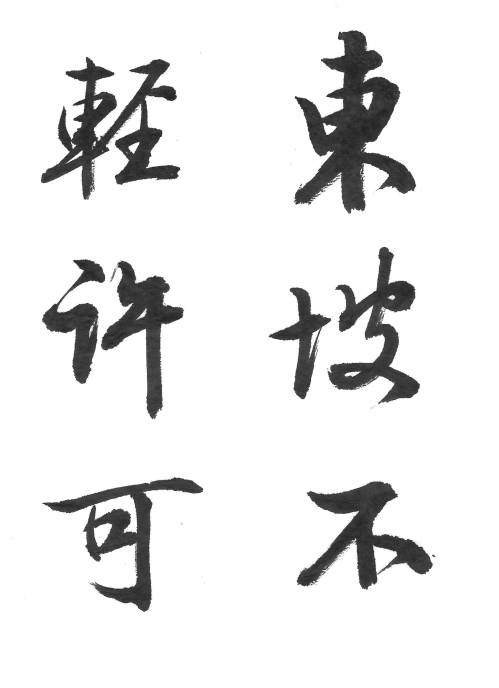 東坡不
輕许可